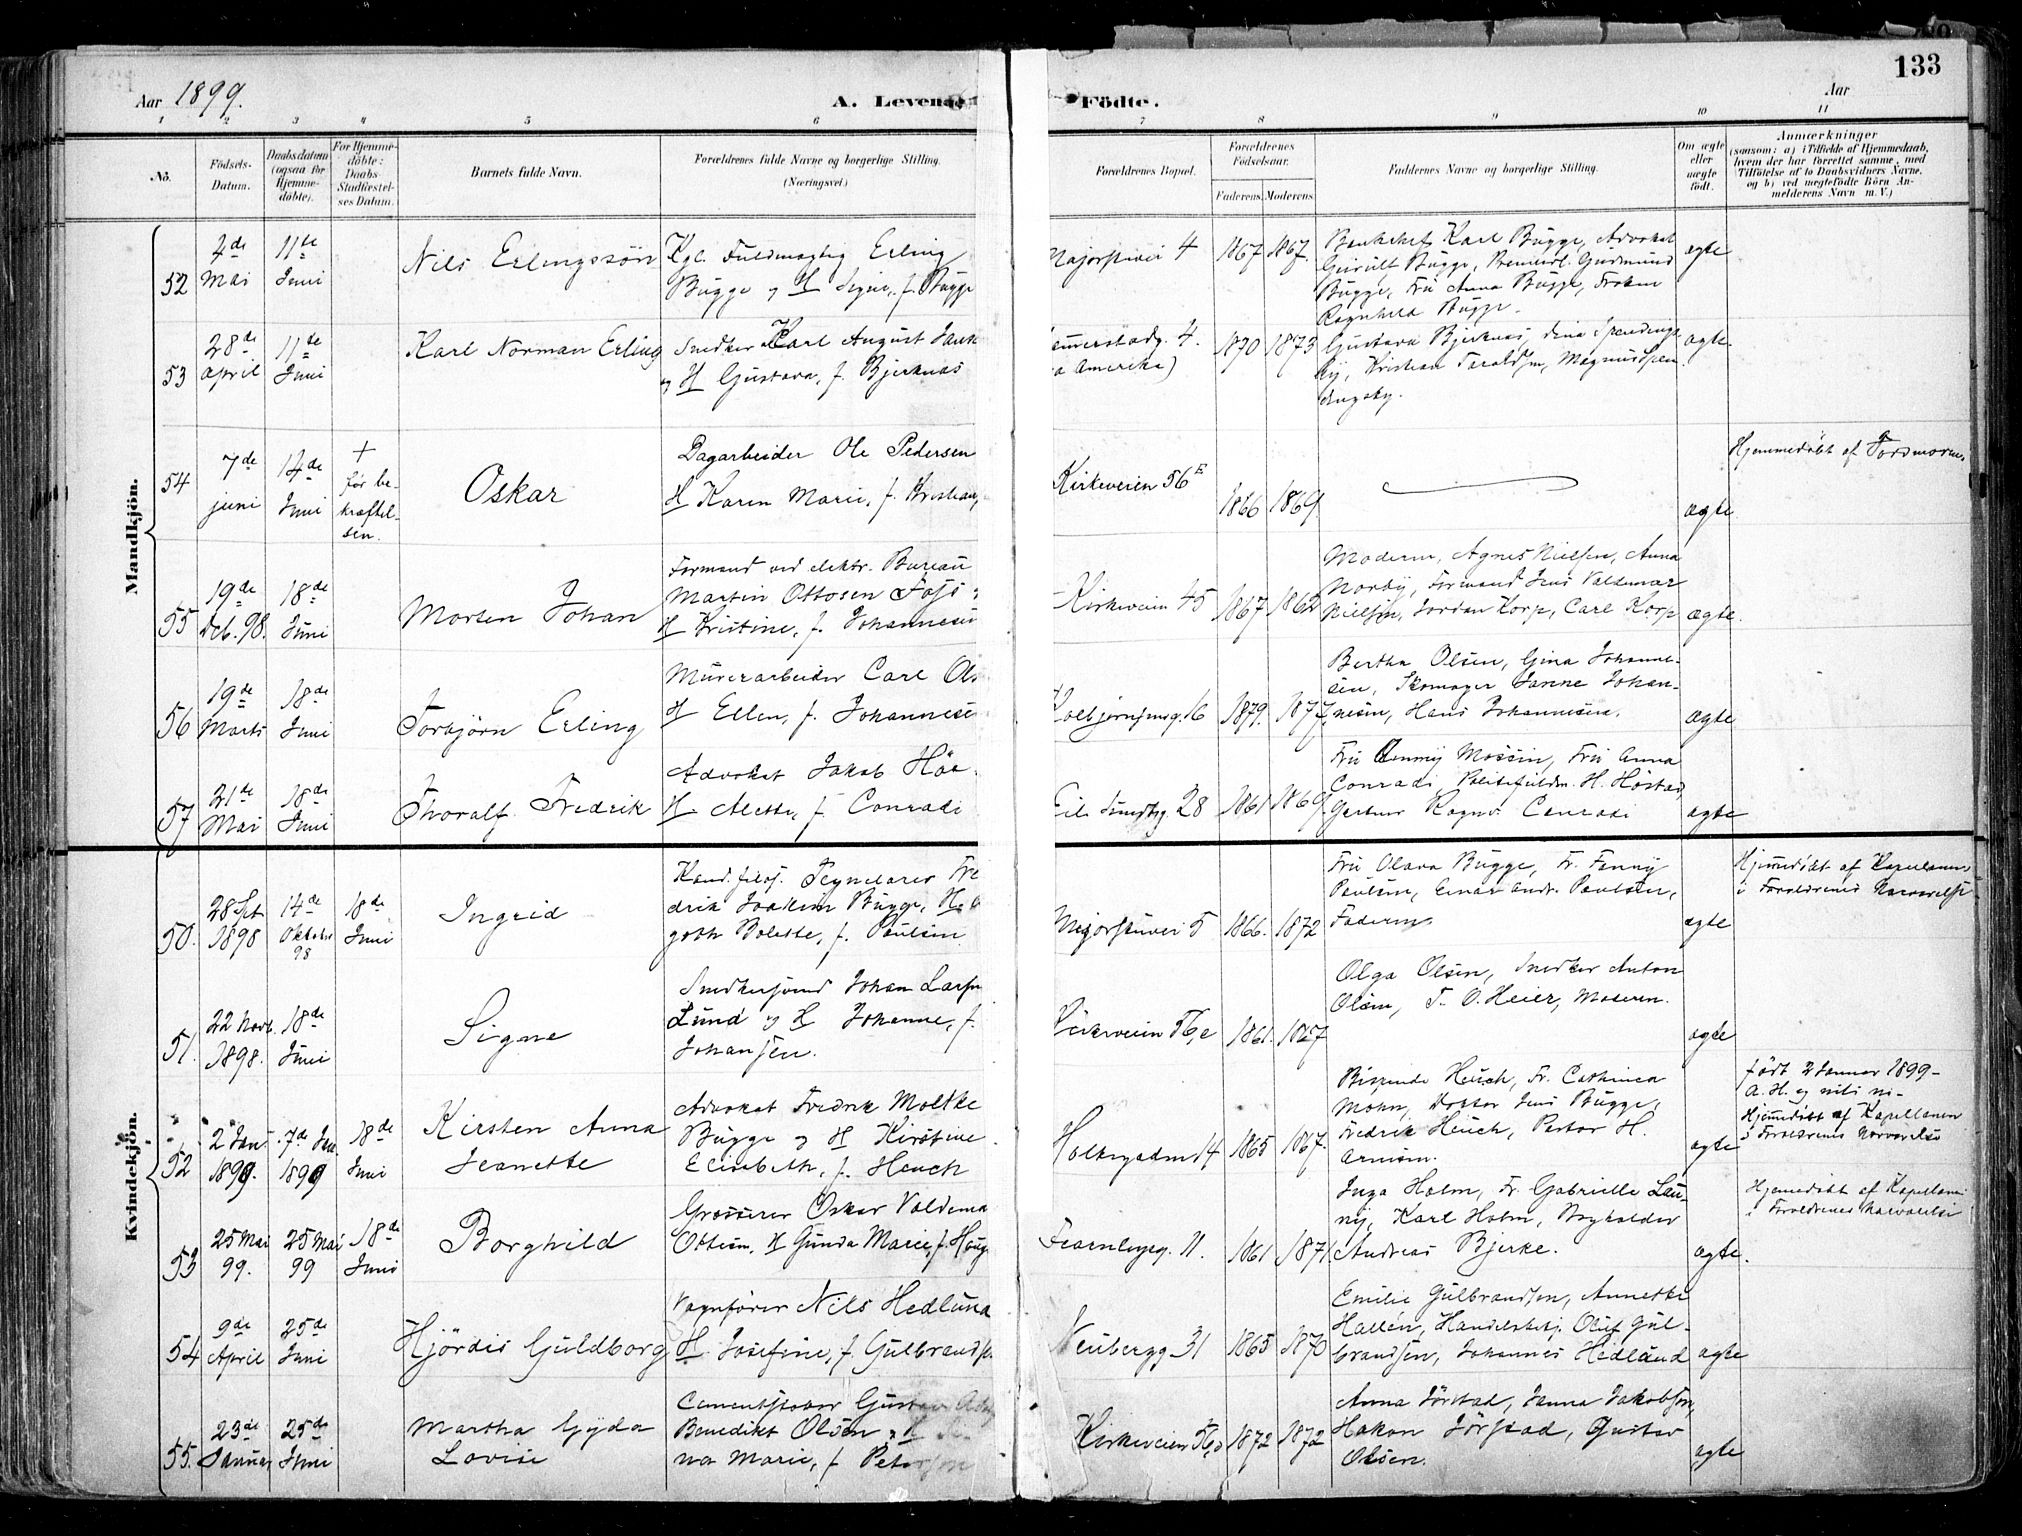 133
Aar 1899.
A. Levende
Födte.
Aar
1 2 3 4 5 6 7 8 9 10 11
No.
Födsels-
Datum.
Daabsdatum
(ogsaa for
Hjemme-
döbte).
For Hjemme-
döbte:
Daabs-
Stadfæstel-
ses Datum.
Barnets fulde Navn.
Forældrenes fulde Navne og borgerlige Stilling.
(Næringsvei.)
Forældrenes Bopæl.
Forældrenes
Födselsaar.
Faderens. Moderens.
Faddernes Navne og borgerlige Stilling.
Om ægte
eller
uægte
født.
Anmærkninger
(saasom: a) i Tilfælde af Hjemmedaab,
hvem der har forrettet samme, med
Tilföielse af to Daabsvidners Navne,
og b) ved uegtefödte Börn An-
melderens Navn m. V.)
Mandkjön.
52
Mai
11te
Juni
Nils Erlingssön
Kgl. Fuldmægtig Erling
Bugge og H Signe, f. Bugge
Majorstuvei 4
1867 1867.
Bankchef Karl Bugge, Advokat
Bugge, Premierl. Gudmund
Bugge, Fru Anna Bugge, Frøken
Ragnhild Bugge.
ægte
53
28de
April
11te
Juni
Karl Norman Erling
Snedker Karl August
og H Gustava, f. Bjerknæs
4.
Amerika)
1870 1873
Gustava Bjerknæs, Dina Spændings-
by, Kristian Taraldsen, Magnus Spæn-
dingsby.
ægte.
54
7de
juni
14de
Juni
+
før be-
kræftel-
sen.
Oskar
Dagarbeider Ole Pedersen
H Karen Marie, f. Kristians
Kirkeveien 56E
1866 1869
ægte
Hjemmedøbt af Jordmoren.
55
19de
Dcb. 98.
18de
Juni
Morten Johan
Formand ved elektr. Bureau
Martin Ottosen
H Kristine, f. Johannesen
Kirkeveien 45
1867 1862
Moderen, Agnes Nielsen, Anna
Norby, Formand Jens Valdemar
Nielsen, Jordan Korp, Carl Korp
ægte.
56
19de
Marts
18de
Juni
Torbjörn Erling
Murerarbeider Carl Ols
H Ellen, f. Johannese
Kolbjørnsensg. 16
1879. 1877
Bertha Olsen, Gina Johanne-
sen, Skomager Janne Johan-
nesen, Hans Johannesen.
ægte
57
21de
Mai
18de
Juni
Thoralf Fredrik
Advokat Jakob
H Alette, f. Conradi
Eil. Sundtsg. 28
1861 1869.
Fru Mossin, Fru Anna
Conradi, Politifuldm. H. Höstad,
Gartner Ragnv. Conradi
ægte
Kvindekjön.
50.
28 Spt.
1898
14de
Oktober
98
18de
Juni
Ingrid
Kand. filos. Tegnelærer Fre
drik Joakim Bugge,
Bolette, f. Paulsen
Majorstuvei 5
1866. 1872
Fru Olava Bugge, Fr. Fanny
Paulsen, Einar Andr. Paulsen,
Faderen.
ægte
Hjemmedøbt af Kapellanen
i Forældrenes Nærværelse
51.
22 Novb.
1898.
18de
Juni
Signe
Snedkersvend Johan Larsen
Lund og H Johanne, f.
Johansen.
Kirkeveien 56,e
1861. 1867
Olga Olsen, Snedker Anton
Olsen, T. O. Heier, Moderen.
ægte
52
2 Jan
1899.
7de Jan.
1899
18de
Juni
Kirsten Anna
Jeanette
Advokat Fredrik Moltke
Bugge og H Kirstine
Elisabeth, f. Heuch
Holtegaden 14
1865 1867.
Bispinde Heuch, Fr. Cathinca
Mohn, Doktor Jens Bugge,
Fredrik Heuch, Pastor H.
Arnesen.
ægte
født 2 Januar 1899 –
A. H. og nitti ni –
Hjemmedøbt af Kapellanen
i Forældrenes Nærværelse
53
25 Mai
99.
25 Mai
99
18de
Juni
Borghild
Grosserer Oskar Valdema
Ottesen, H Gunda Marie, f. Haug
Fearnleysg. 11.
1861 1871.
Inga Holm, Fr. Gabrielle Lau-
ny, Karl Holm, Bogholder
Andreas Bjerke.
ægte.
Hjemmedøbt af Kapellanen
i Forældrenes Nærværelse
54
9de
April
25de
Juni
Hjördis Guldborg
Vognfører Nils Hedlund
H. Josefine, f. Gulbrands
Neubergg. 31
1865 1870
Emilie Gulbrandsen, Annette
Hallén, Handelsbetj. Oluf Gul-
brandsen, Johannes Hedlund
ægte
55.
23de
Januar
25de
Juni
Martha Gyda
Lovise
Cementstøber Gustav
Benedikt Olsen og H
na Marie, f. Peterson
Kirkeveien 56,
1872 1872
Anna Jörstad, Janna Jakobsen,
Hakon Jörstad, Gustav
Olsen.
ægte